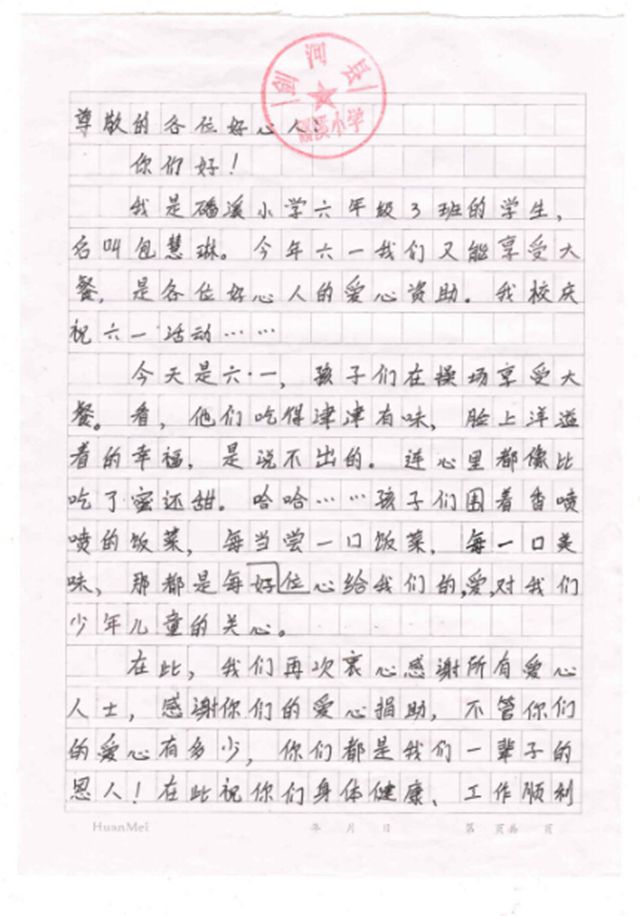 剑河县
磻溪小学
尊敬的各位好心人：
你们好！
我是磻溪小学六年级3班的学生，
名叫包慧琳。今年六一我们又能享受大
餐，是各位好心人的爱心资助。我校庆
祝六一活动……
今天是六·一，孩子们在操场享受大
餐。看，他们吃得津津有味，脸上洋溢
着的幸福，是说不出的。连心里都像比
吃了蜜还甜。哈哈……孩子们围着香喷
喷的饭菜，每当尝一口饭菜，每一口美
味，那都是每好位心给我们的，爱，对我们
少年儿童的关心。
在此，我们再次衷心感谢所有爱心
人士，感谢你们的爱心捐助，不管你们
的爱心有多少，你们都是我们一辈子的
恩人！在此祝你们身体健康、工作顺利
HuanMei 年 月 日 第 页共 页